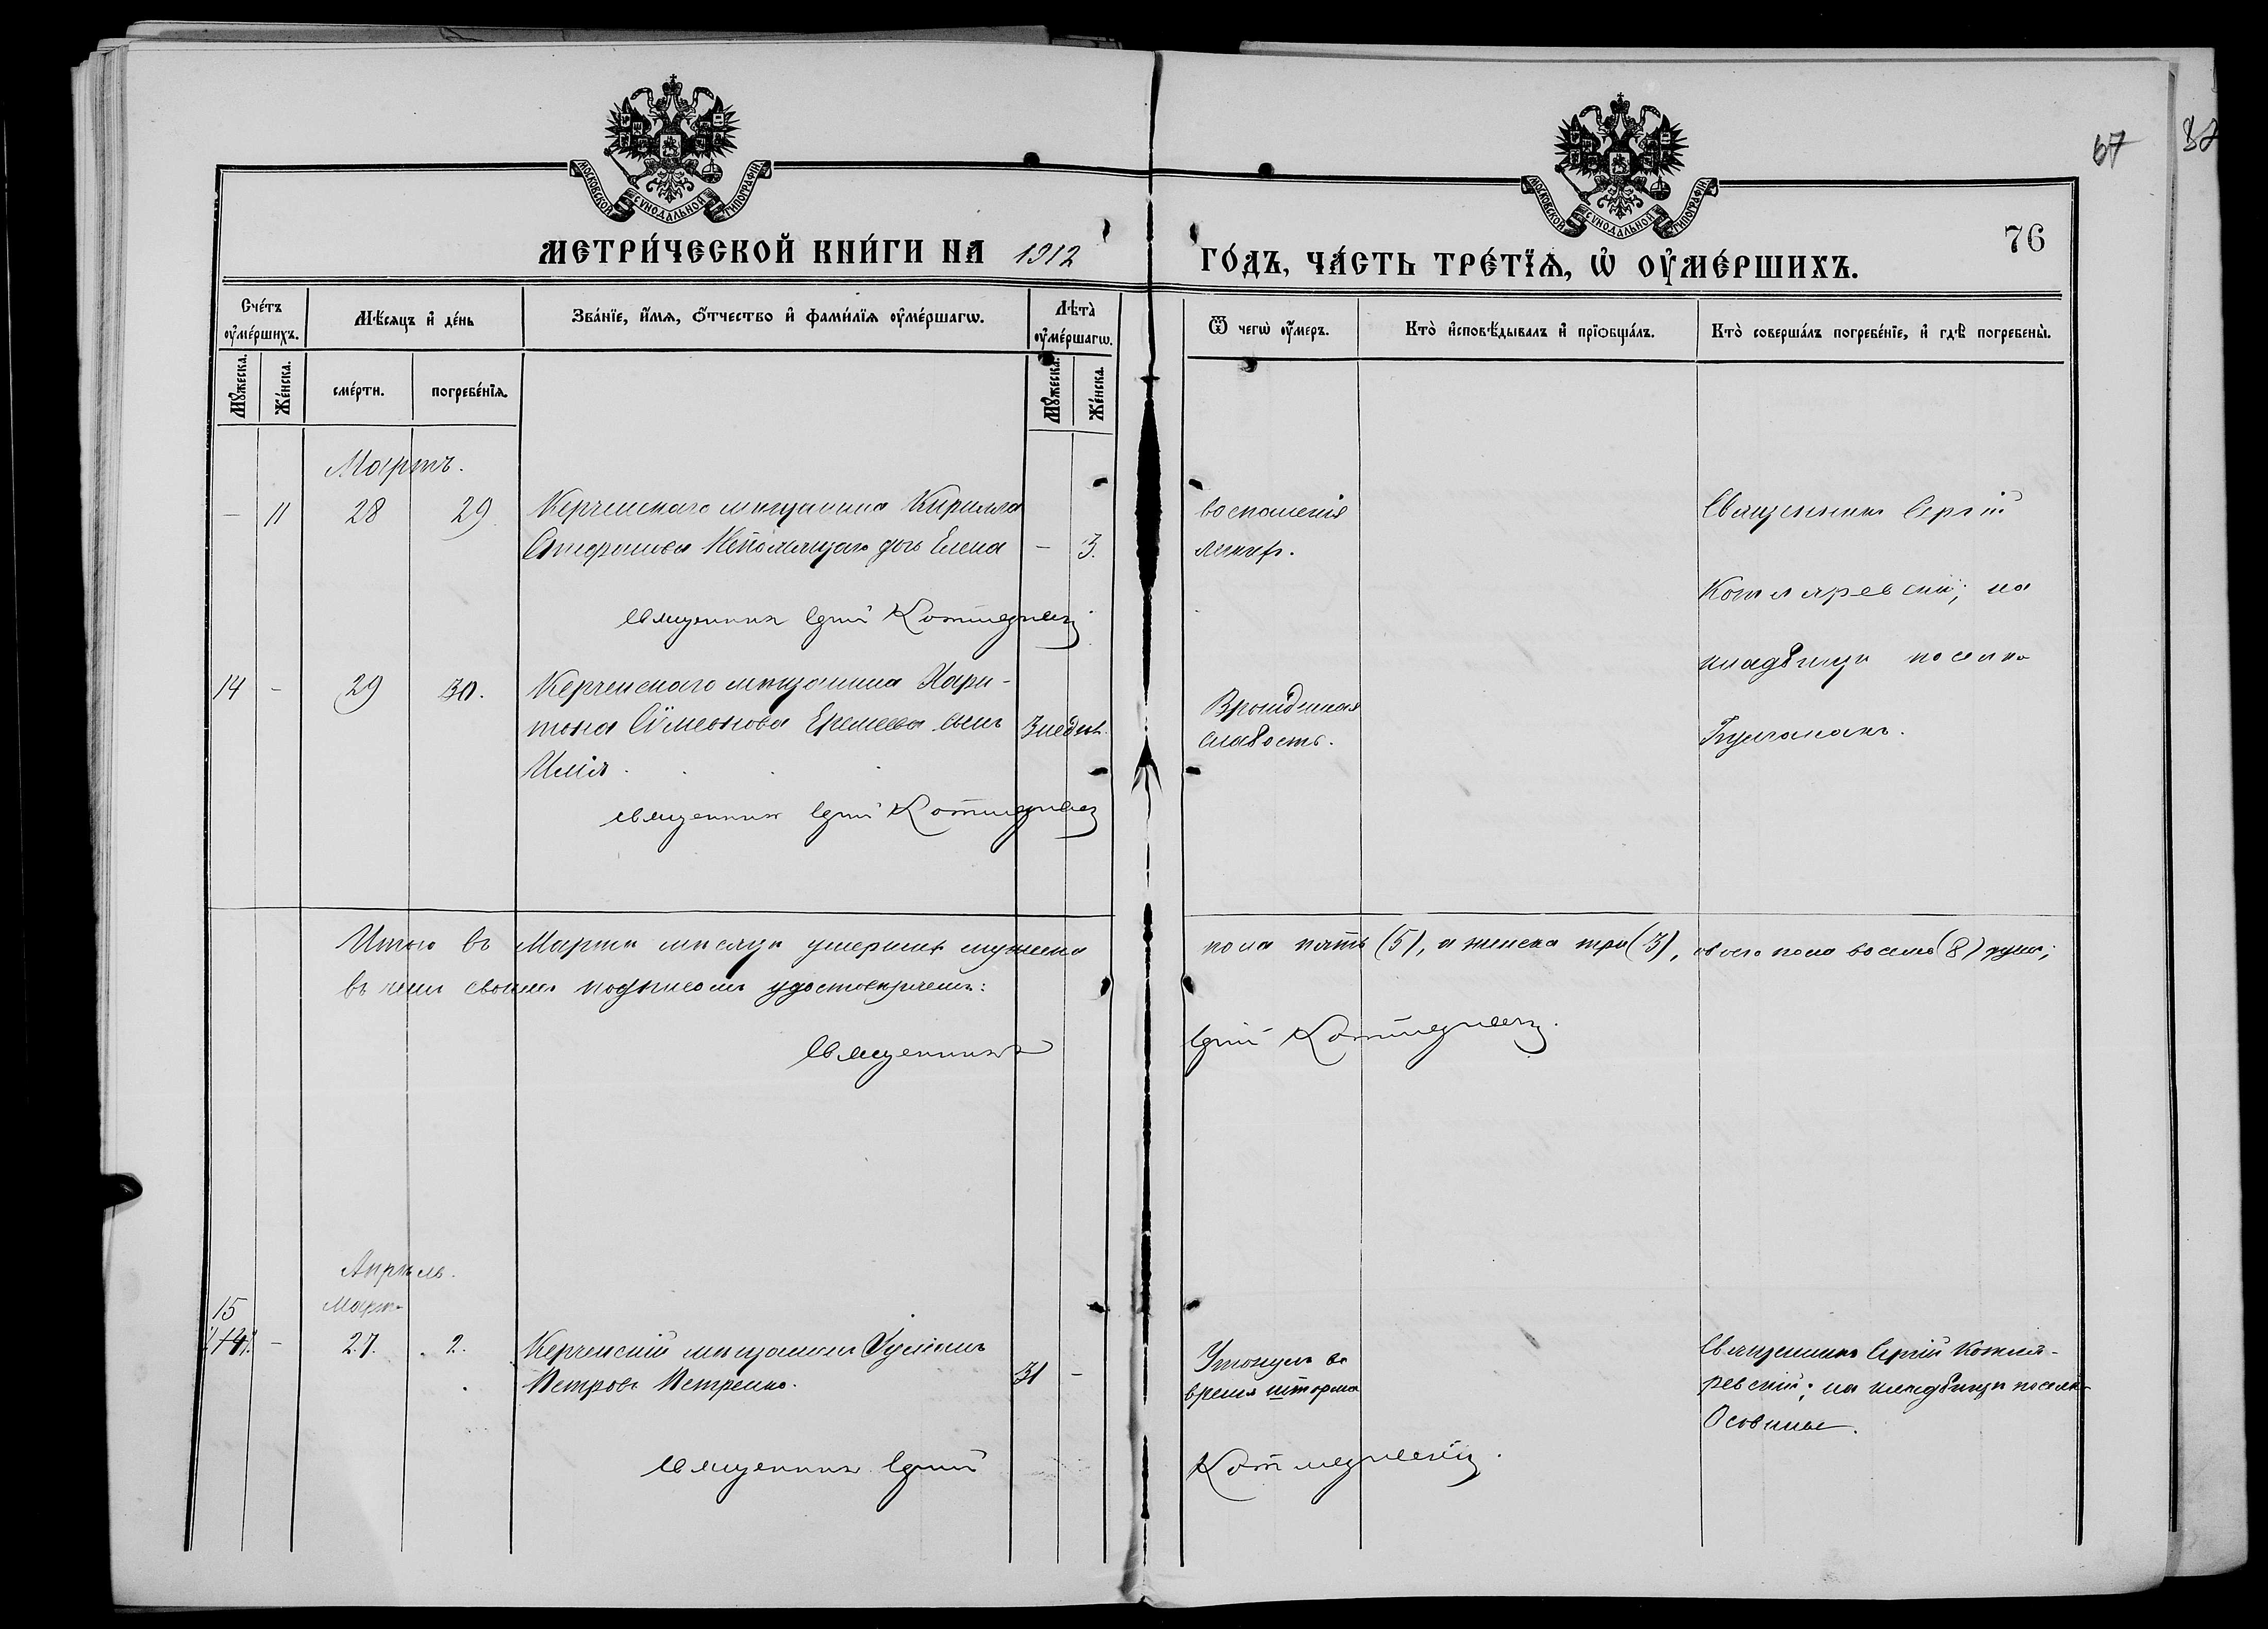 67
82
МОСКОВСКОЙ СѴНОДАЛЬНОЙ ТИПОГРАФІИ
МОСКОВСКОЙ СѴНОДАЛЬНОЙ ТИПОГРАФІИ
МЕТРИ́ЧЕСКОЙ КНИ́ГИ НА 1912
ГО́ДЪ, ЧА́СТЬ ТРЕ́ТЇѦ, Ѡ҆ ОУ҆МЕ́РШИХЪ.
76
Сче́тъ оу҆ме́ршихъ.
Мꙋ́жеска.
Же́нска.
Мѣ́сяцъ и҆ де́нь
сме́рти.
погребе́нїѧ.
Зва́нїе, и҆́мѧ, ѻ҆́тчество и҆ фами́лїѧ оу҆ме́ршагѡ.
Лѣ́та оу҆ме́ршагѡ.
Мꙋ́жеска.
Же́нска.
Ѿ чегѡ̀ оу҆́меръ.
Кто̀ и҆сповѣ́дывалъ и҆ прїѡбща́лъ.
Кто̀ соверша́лъ погребе́нїе, и҆ гдѣ̀ погребены̀.
Мартъ.
— 11 28 29 Керченскаго мѣщанина Кирилла
Стефанова Непомнящаго дочь Елена — 3.
воспаленія
легкихъ.
Священникъ Сергій
Котляревскій; на
кладбищѣ поселка
Булганакъ.
Священникъ Сергій Котляревскій
14 — 29 30. Керченскаго мѣщанина Хари-
тона Сѵмеонова Еремеева сынъ 3 недѣл.
Илія.
Врожденная
слабость.
Священникъ Сергій Котляревскій
Итого въ Мартѣ мѣсяцѣ умершихъ мужеска пола пять (5), а женска три (3), обоего пола восемь (8) душъ;
въ чемъ своимъ подписомъ удостовѣряемъ:
Священникъ Сергій Котляревскій.
Апрѣль.
15 Март.
14 — 27. 2. Керченскій мѣщанинъ Іуліанъ
Петровъ Петренко. 31 —
Утонулъ во
время шторма
Священникъ Сергій Котля-
ревскій; на кладбищѣ поселка
Осовины.
Священникъ Сергій Котляревскій.